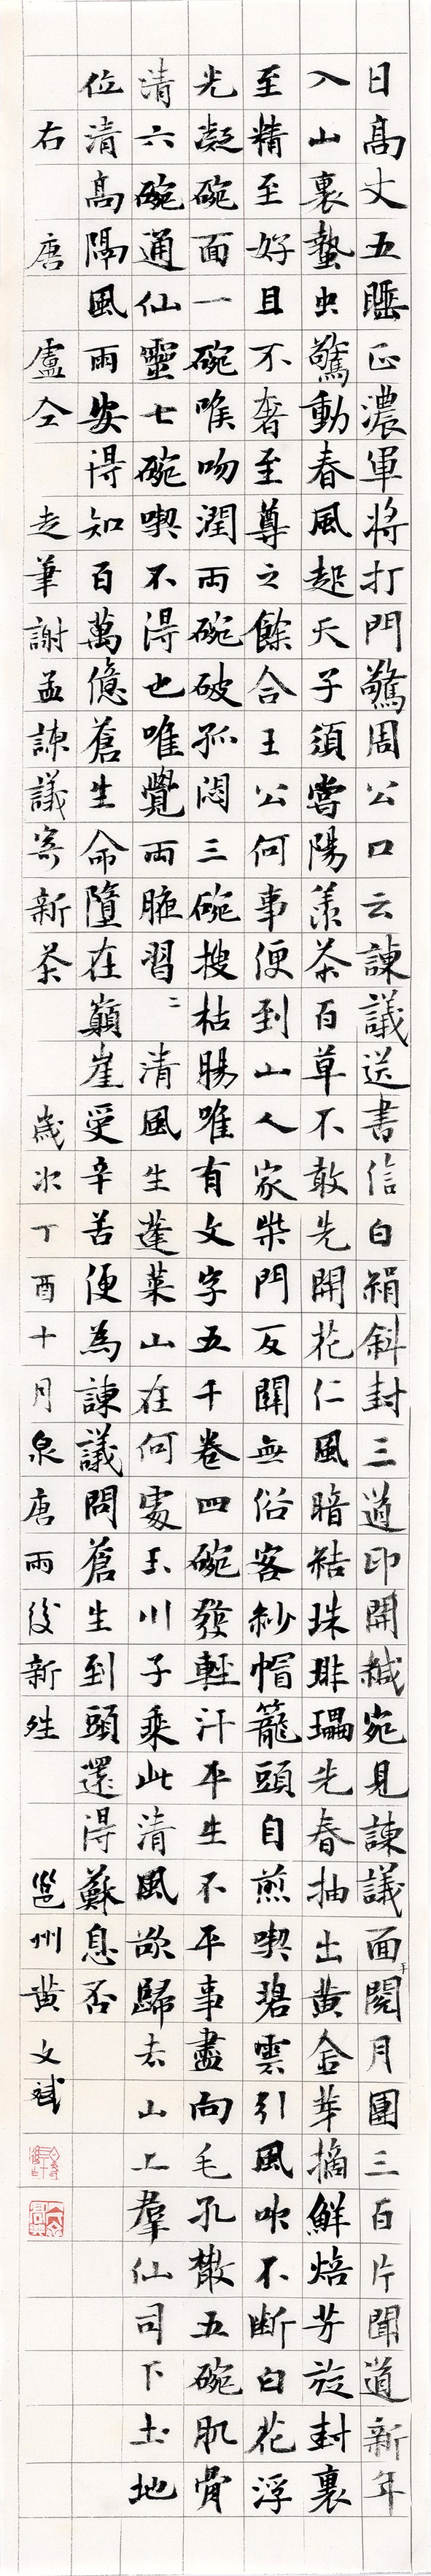 日高丈五睡正濃軍將打門驚周公口云諫議送書信白絹斜封三道印開緘宛見諫議面手閱月團三百片聞道新年
入山裏蟄虫驚動春風起天子須嘗陽羨茶百草不敢先開花仁風暗結珠琲瓃先春抽出黃金華摘鮮焙芳旋封裏
至精至好且不奢至尊之餘合王公何事便到山人家柴門反關無俗客紗帽籠頭自煎喫碧雲引風吹不斷白花浮
光凝碗面一碗喉吻潤兩碗破孤悶三碗搜枯腸唯有文字五千卷四碗發輕汗平生不平事盡向毛孔散五碗肌骨
清六碗通仙靈七碗喫不得也唯覺兩腋習〻清風生蓬萊山在何處玉川子乘此清風欲歸去山上群仙司下土地
位清高隔風雨安得知百萬億蒼生命墮在巔崖受辛苦便為諫議問蒼生到頭還得蘇息否
右唐盧仝走筆謝孟諫議寄新茶 歲次丁酉十月泉唐雨後新姓 邕州黃文斌